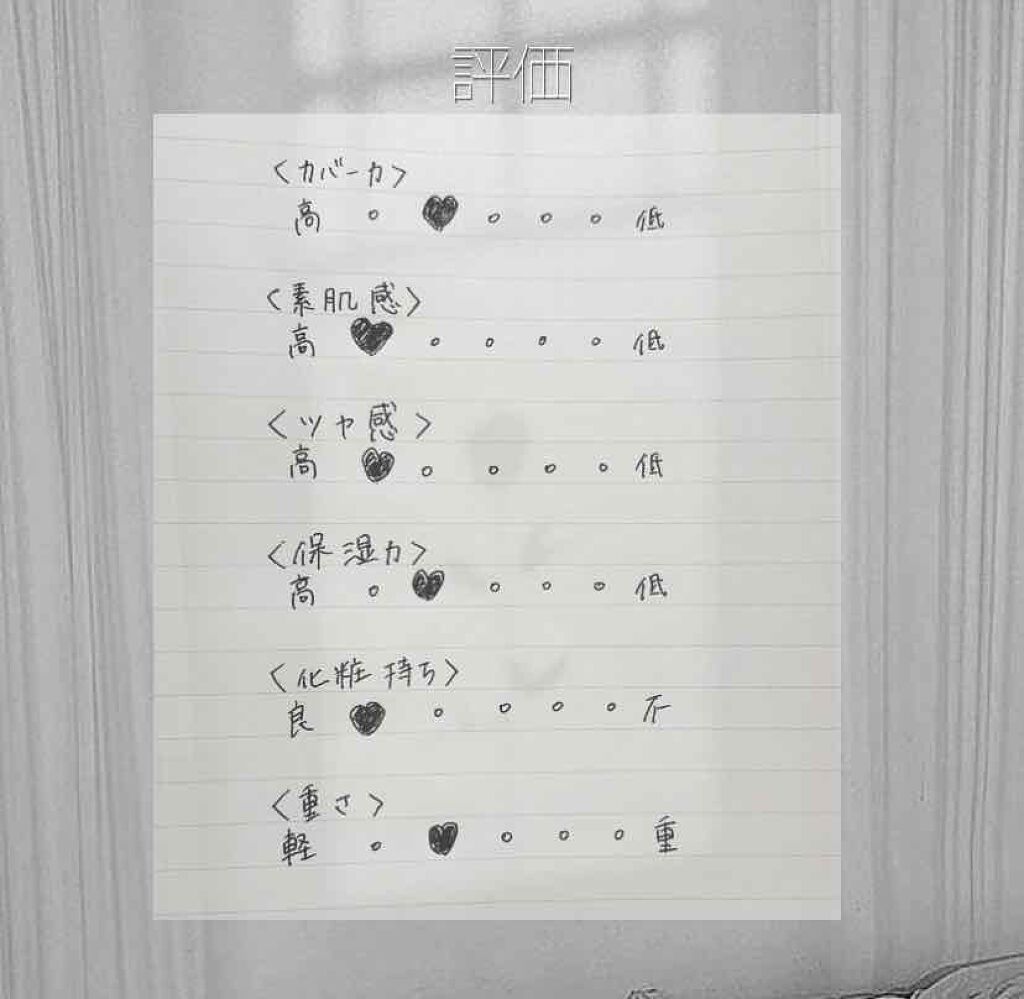 評価
〈カバー力〉
高 ○ ♥ ○ ○ ○ 低
〈素肌感〉
高 ♥ ○ ○ ○ ○ 低
〈ツヤ感〉
高 ♥ ○ ○ ○ ○ 低
〈保湿力〉
高 ○ ♥ ○ ○ ○ 低
〈化粧持ち〉
良 ♥ ○ ○ ○ ○ 不
〈重さ〉
軽 ○ ♥ ○ ○ ○ 重